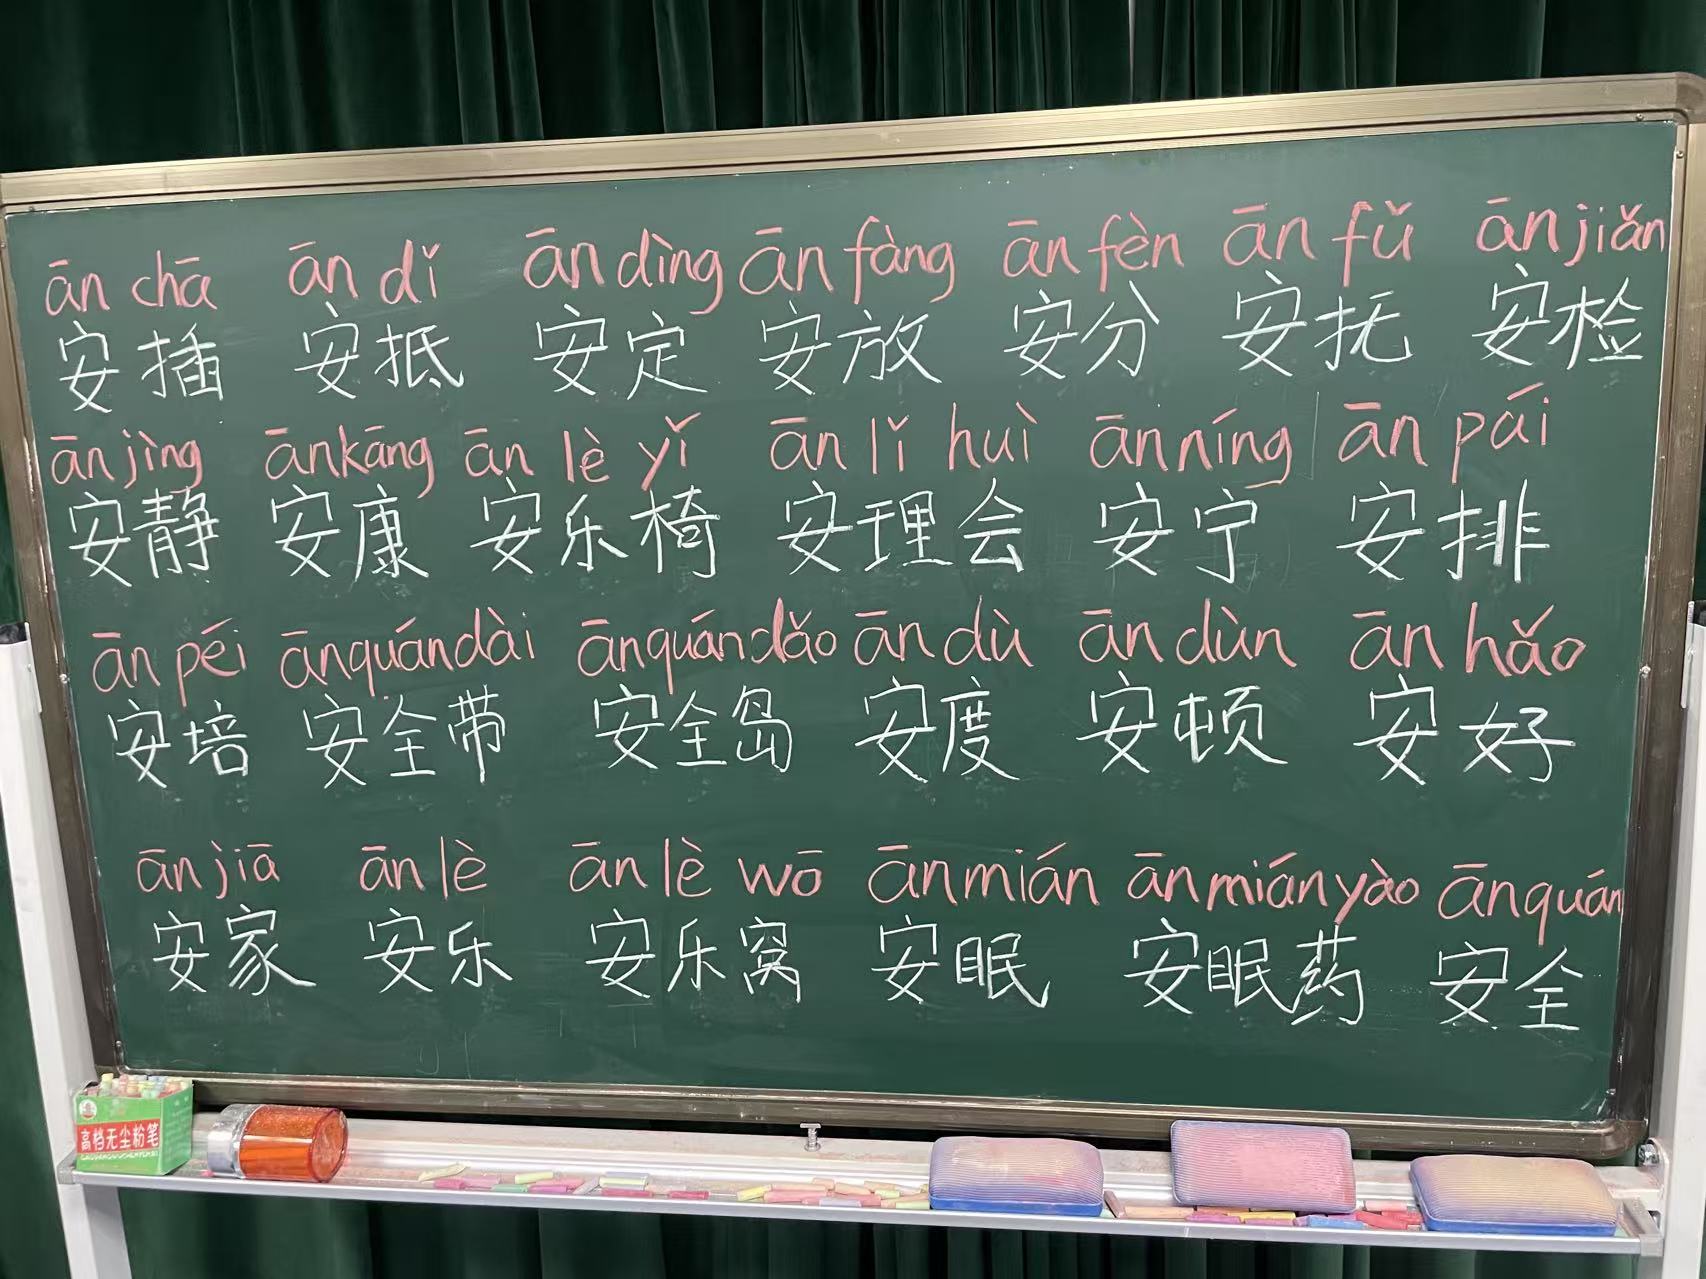 ān chā ān dǐ ān dìng ān fàng ān fèn ān fǔ ān jiǎn
安插 安抵 安定 安放 安分 安抚 安检
ān jìng ān kāng ān lè yǐ ān lǐ huì ān níng ān pái
安静 安康 安乐椅 安理会 安宁 安排
ān péi ān quán dài ān quán dǎo ān dù ān dùn ān hǎo
安培 安全带 安全岛 安度 安顿 安好
ān jiā ān lè ān lè wō ān mián ān mián yào ān quán
安家 安乐 安乐窝 安眠 安眠药 安全
高档无尘粉笔